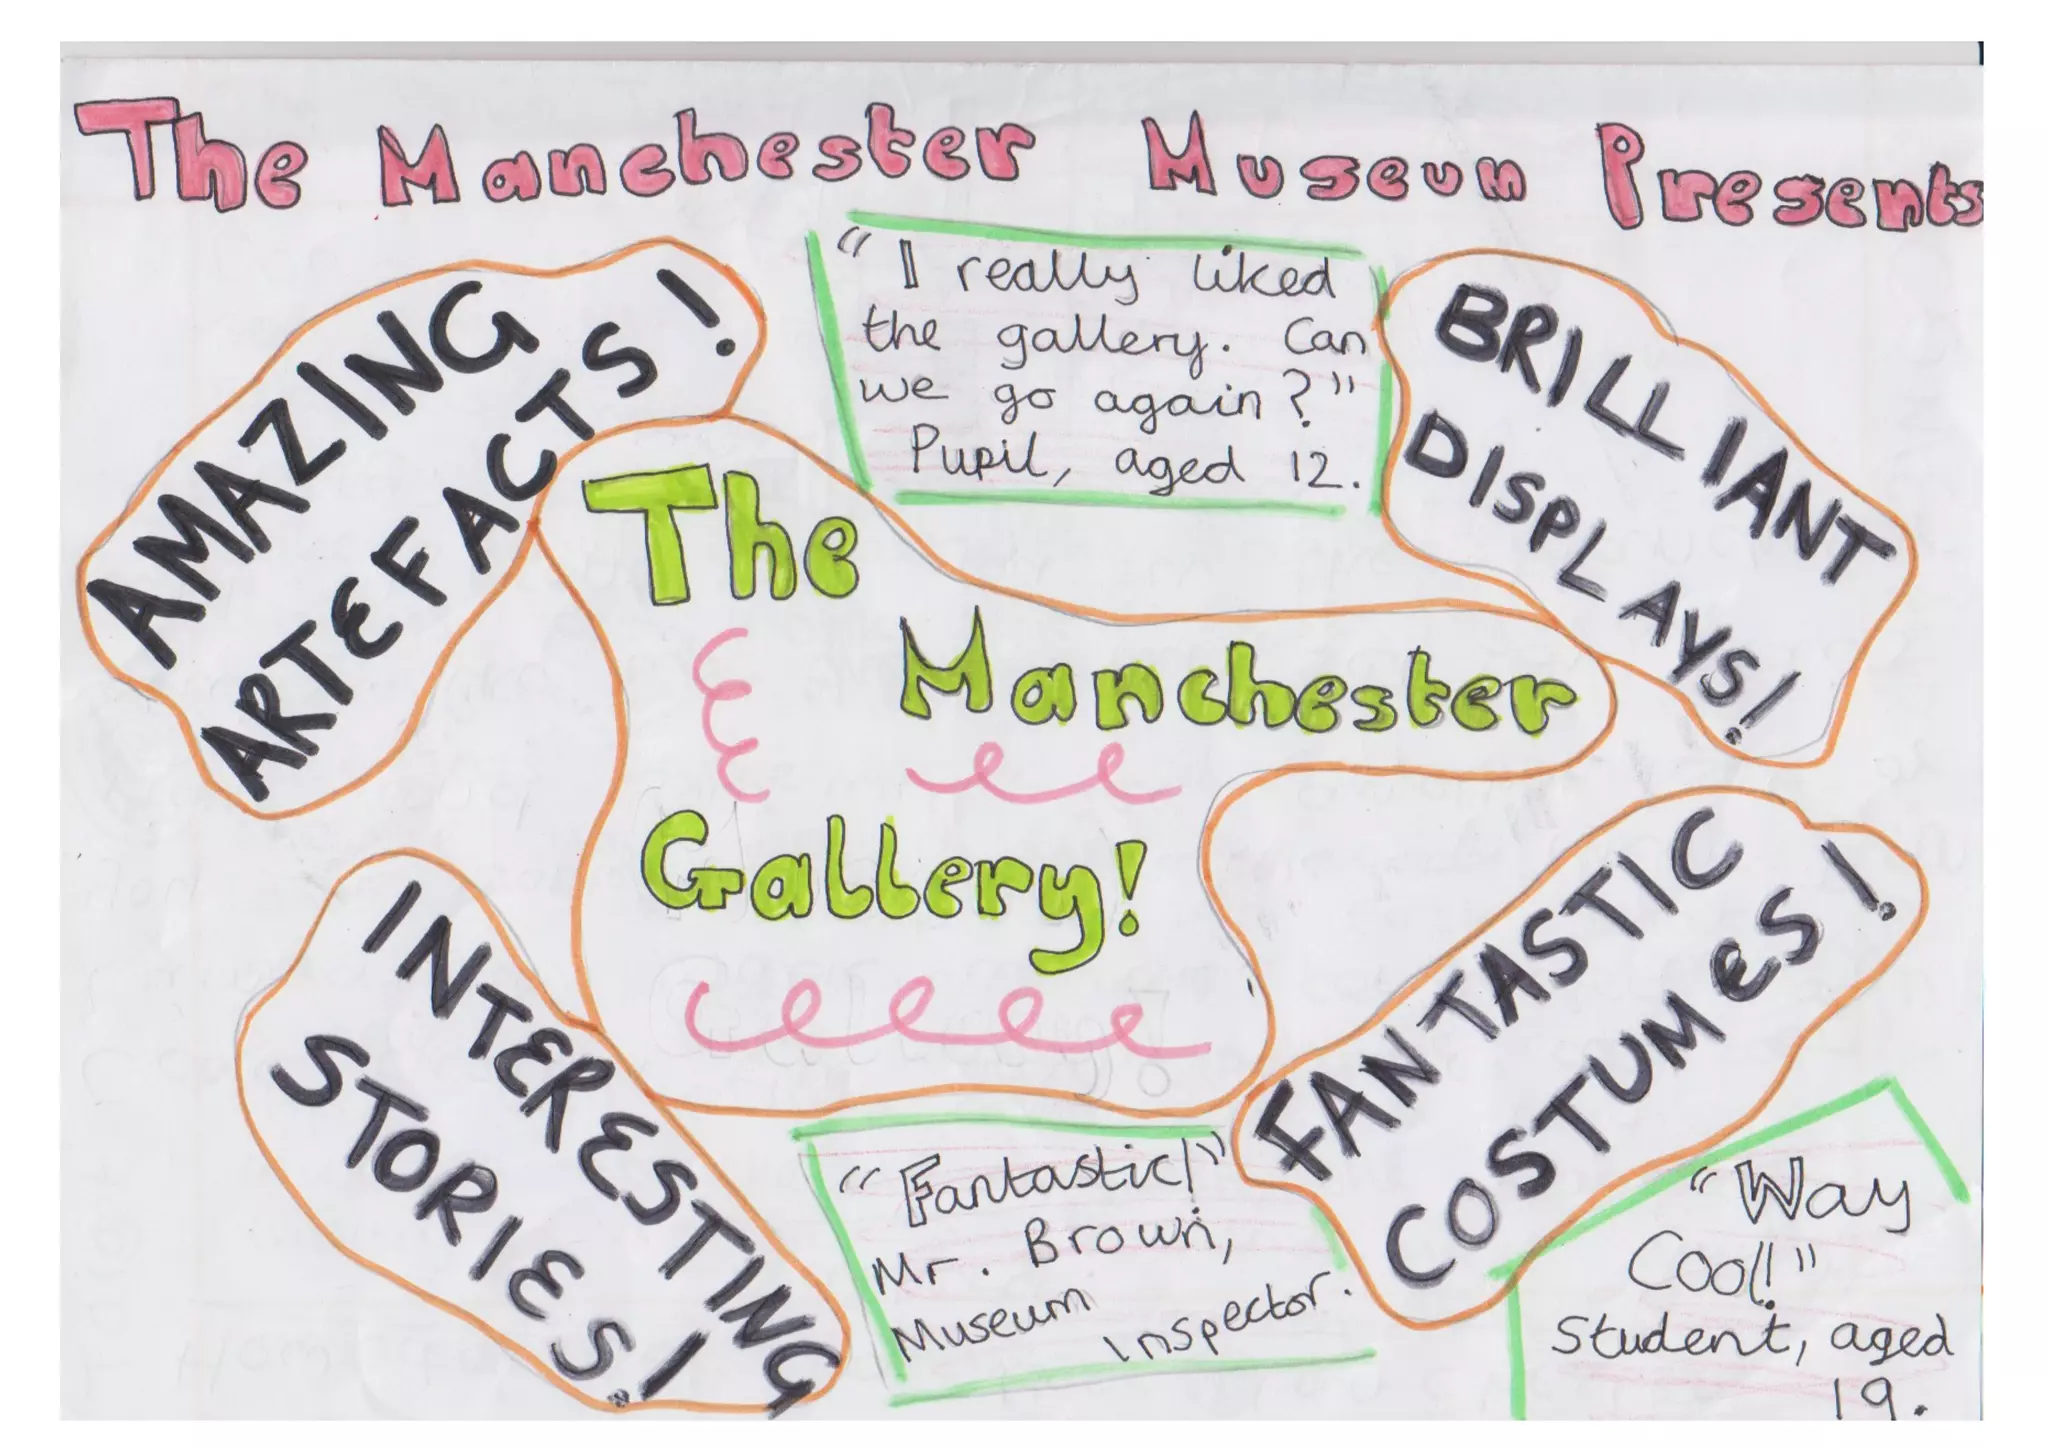 The Manchester Museum Presents
AMAZING
ARTEFACTS!
"I really liked
the gallery. Can
we go again?"
Pupil, aged 12.
BRILLIANT
DISPLAYS!
The
Manchester
Gallery!
INTERESTING
STORIES!
"Fantastic!"
Mr. Brown,
Museum
Inspector.
FANTASTIC
COSTUMES!
"Way
Cool!"
Student, aged
19.